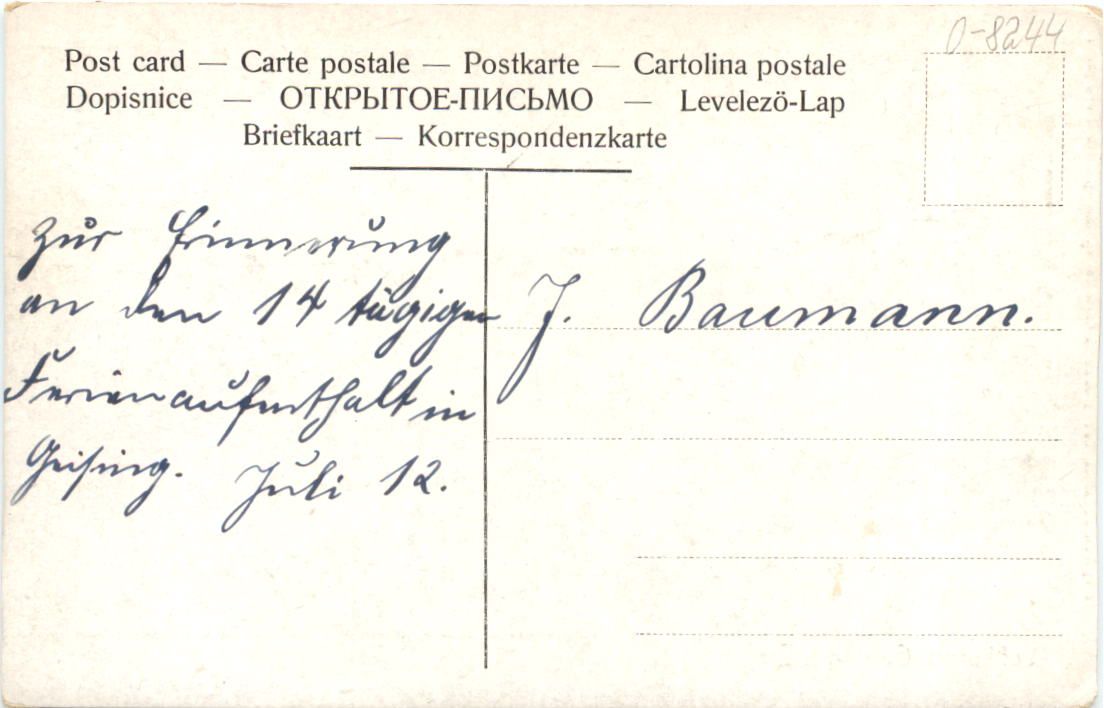 0-8244
Post card — Carte postale — Postkarte — Cartolina postale
Dopisnice — ОТКРЫТОЕ-ПИСЬМО — Levelezö-Lap
Briefkaart — Korrespondenzkarte
Zur Erinnerung
an den 14 tägigen
Ferienaufenthalt in
Geising. Juli 12.
J. Baumann.